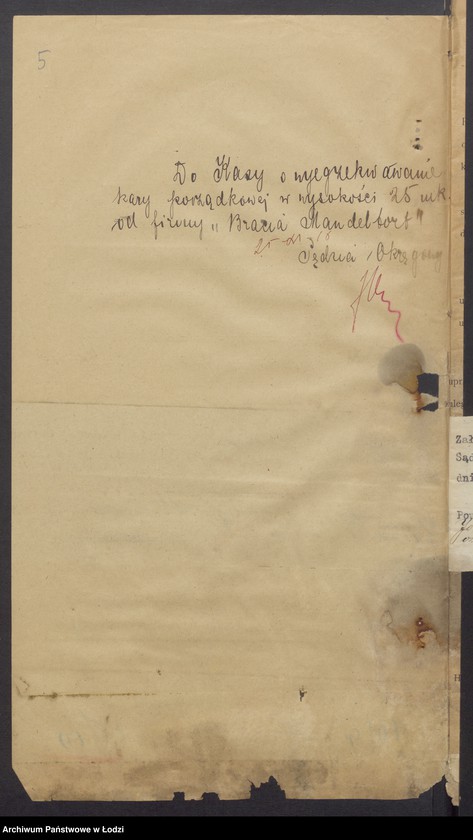 5
Do Kasy o wyegzekwowanie
kary porządkowej w wysokości 25 mk.
od firmy „Bracia Mandeltort"
Sędzia Okręgowy
upr
Zał
Sąd
dni
Archiwum Państwowe w Łodzi